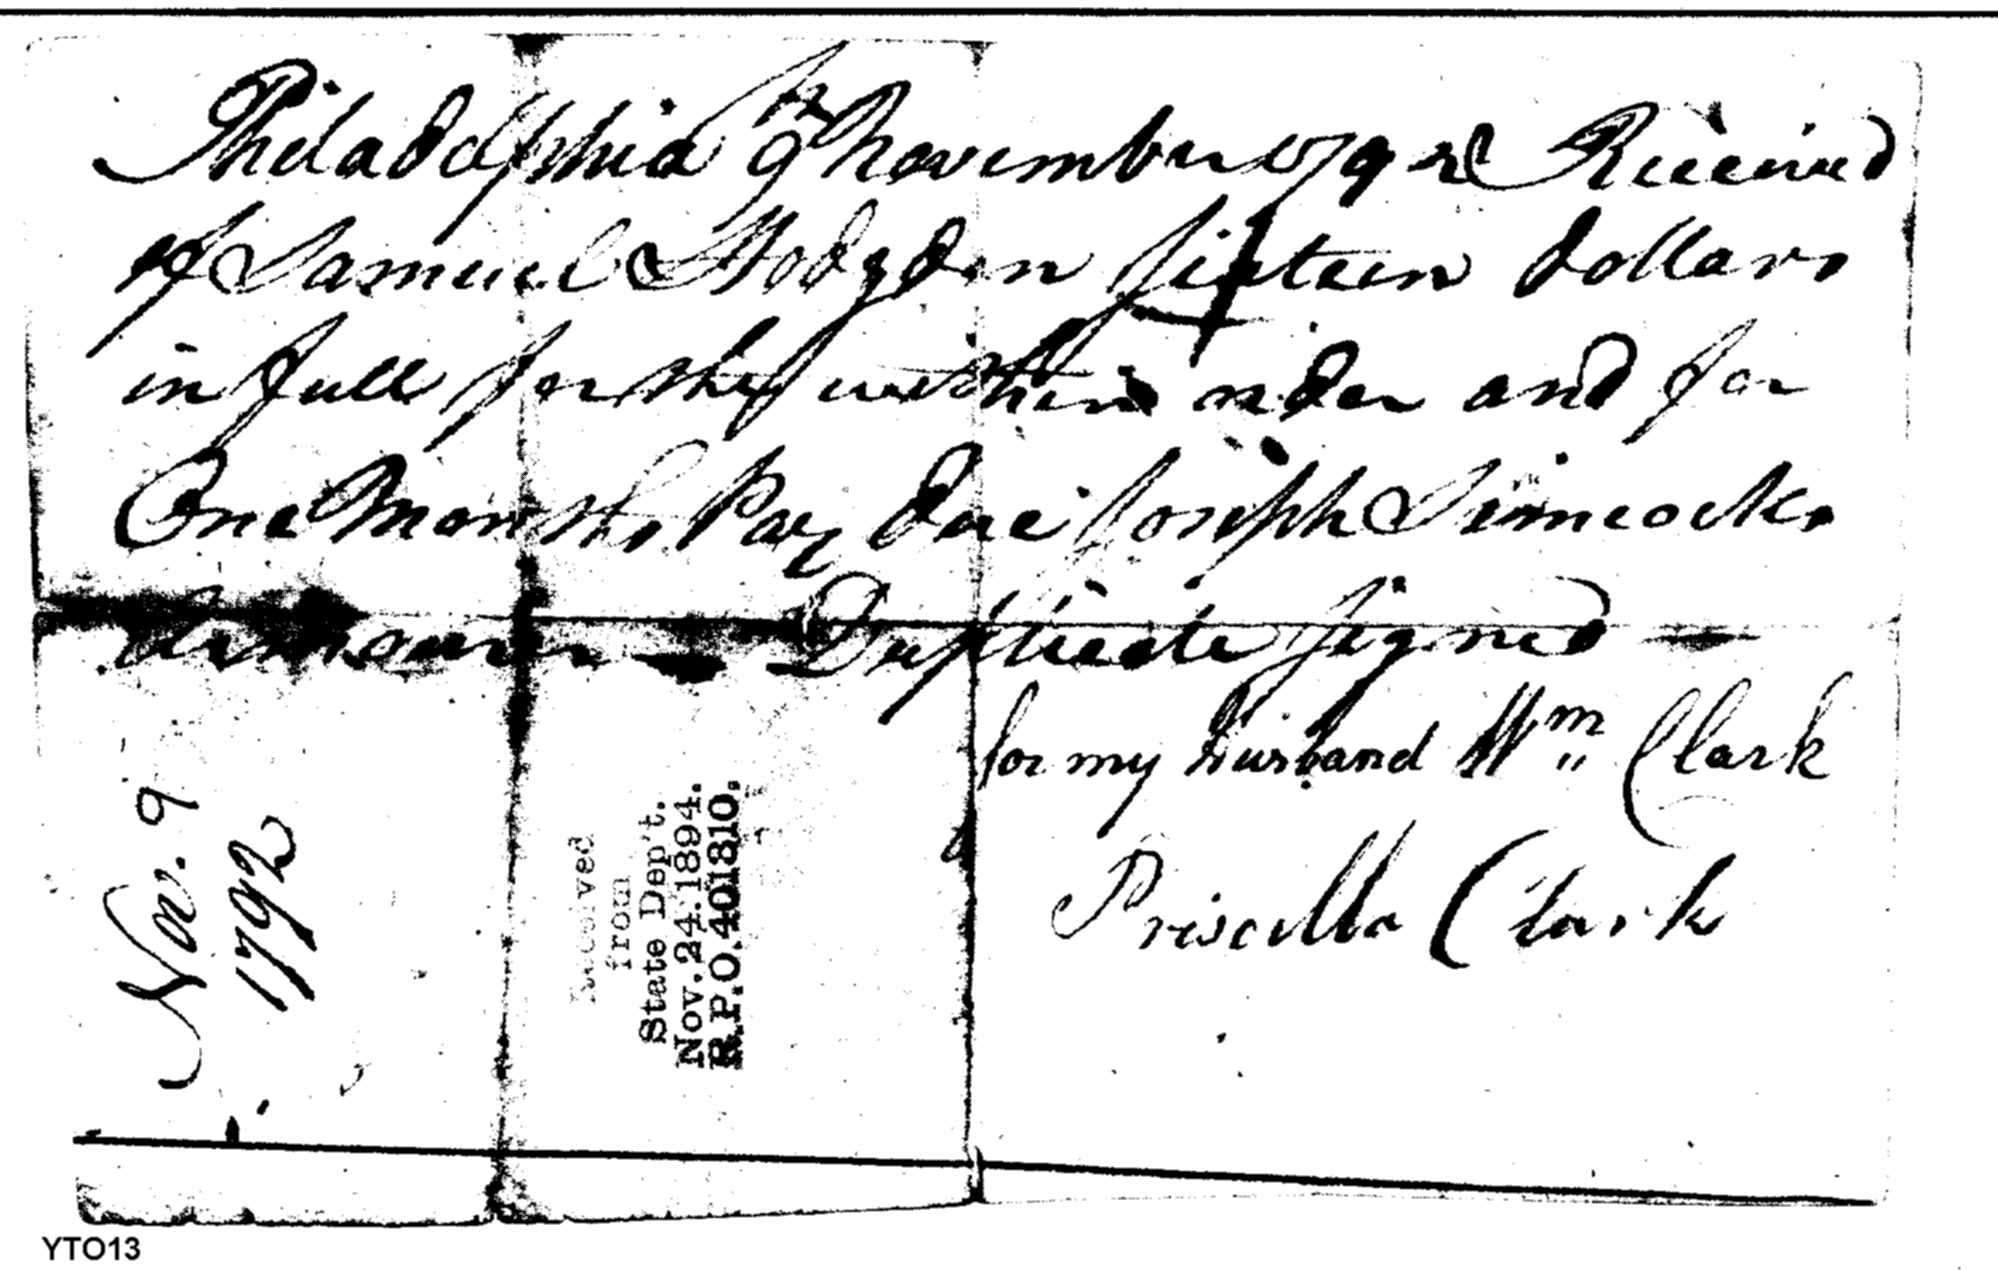 Philadelphia 9th November 1792 Received
of Samuel Hodgdon fifteen dollars
in full for the within order and for
One Months Pay due Joseph Simcocks
Duplicate signed —
for my husband Wm Clark
Priscilla Clark
Nov. 9
1792
Received
from
State Dep't.
Nov. 24. 1894.
R.P.O. 401810.
YTO13